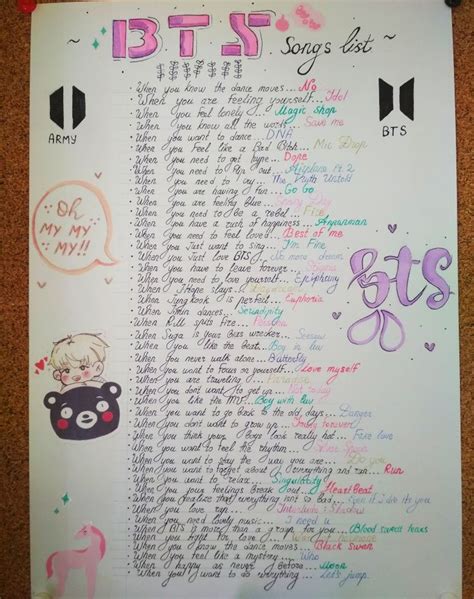 ~ BTS Songs list ~
ARMY
BTS
Oh
MY MY
MY!!
BTS
When you know the dance moves... No
When you are feeling yourself... Idol
When you feel lonely... Magic Shop
When you know all the words... Save me
When you want to dance... DNA
When you feel like a Bad Bbh... Mic Drop
When you need to get hype... Dope
When you need to Pop Out... Airplane Pt. 2
When you need to cry... The Truth Untold
When you are having fun... Go Go
When you are feeling blue... Spring Day
When you need to be a rebel... Fire
When you have a rush of happiness... Anpanman
When you need to feel loved... Best of me
When you Just want to sing... I'm Fine
When you Just love BTS... No more dream
When you have to leave forever... Stigma
When you need to love yourself... Epiphany
When J Hope slays...
When Jungkook is perfect... Euphoria
When Jimin dances... Serendipity
When RM spits fire... Persona
When Suga is your bias wrecker... Seesaw
When You like the best... Boy in luv
When You never walk alone... Butterfly
When you want to focus on yourself... Love myself
When you are traveling... Paradise
When you don't want to get up... Not today
When you like the MV... Boy with luv
When you want to go back to the old days... Danger
When you don't want to grow up... Young forever
When you think your boys look really hot... Fake love
When you want to feel the rhythm...
When you want to play the way you are...
When you want to forget about everything and run... Run
When you want to relax... Singularity
When your feelings break out... HeartBeat
When you realize that everything isn't so bad... Even if I die it's you
When you love rap... Interlude: Shadow
When you need lovely music... I need u
When BTS is more than a group for you... Blood sweat tears
When you fight for love...
When you know the dance moves... Black Swan
When you feel like a mystery... Who
When happy as never before... Moon
When you want to do everything... Let's jump.